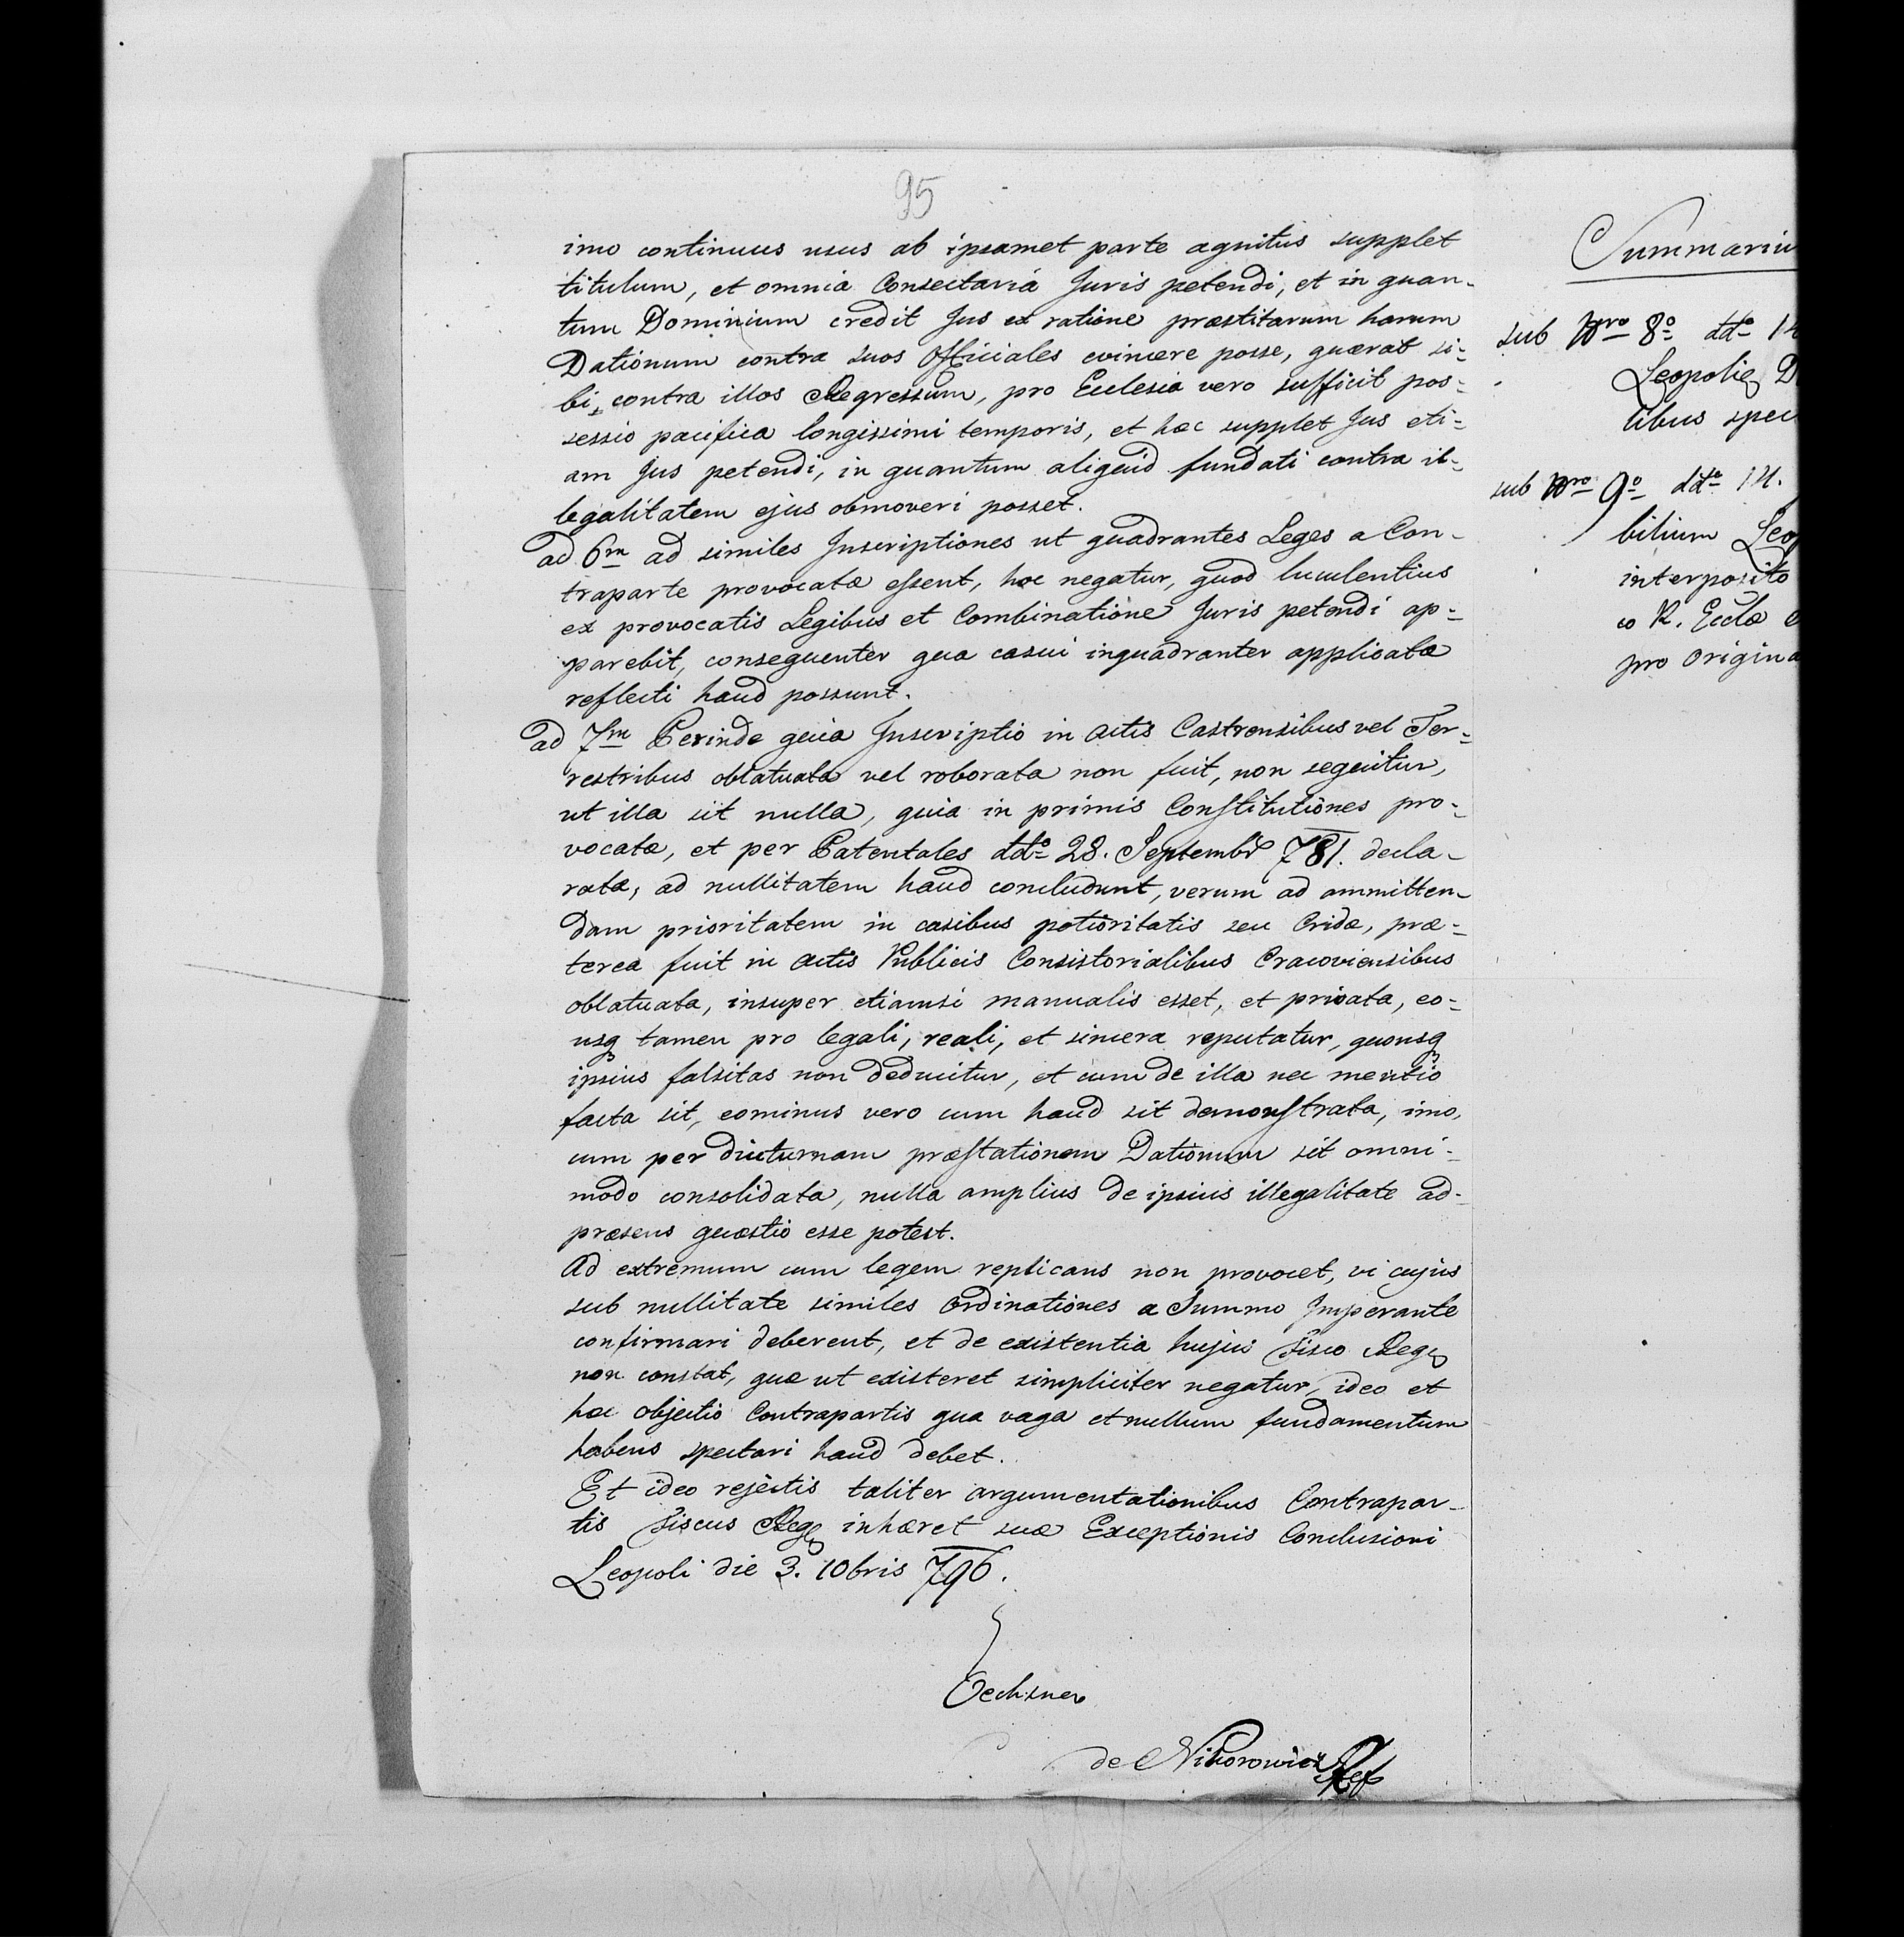 95
imo continuus usus ab ipsamet parte agnitus supplet
titulum, et omnia Consectaria Juris petendi, et in quan-
tum Dominium credit Jus ex ratione præstitarum harum
Dationum contra suos Officiales evincere posse, quærat si-
bi, contra illos Regressum, pro Ecclesia vero sufficit pos-
sessio pacifica longissimi temporis, et hæc supplet Jus eti-
am Jus petendi, in quantum aliquid fundati contra il-
legalitatem ejus obmoveri posset.
ad 6m ad similes Inscriptiones ut quadrantes Leges a Con-
traparte provocatæ essent, hoc negatur, quod luculentius
ex provocatis Legibus et Combinatione Juris petendi ap-
parebit, consequenter qua casui inquadranter applicatæ
reflecti haud possunt.
ad 7m Perinde quia Inscriptio in Actis Castrensibus vel Ter-
restribus oblatuata vel roborata non fuit, non sequitur,
ut illa sit nulla, quia in primis Constitutiones pro-
vocatæ, et per Patentales ddto 28. Septembr 781. decla-
ratæ, ad nullitatem haud concludunt, verum ad ammitten-
dam prioritatem in casibus potioritatis seu Cridæ, præ-
terea fuit in Actis Publicis Consistorialibus Cracoviensibus
oblatuata, insuper etiamsi manualis esset, et privata, eo-
usq tamen pro legali, reali, et sincera reputatur, quousq
ipsius falsitas non deducitur, et cum de illa nec mentio
facta sit, eominus vero cum haud sit demonstrata, imo,
cum per diuturnam præstationem Dationum sit omni-
modo consolidata, nulla amplius de ipsius illegalitate ad-
præsens quæstio esse potest.
Ad extremum cum legem replicans non provocet, vi cujus
sub nullitate similes Ordinationes a Summo Imperante
confirmari deberent, et de existentia hujus Fisco Reg
non constat, quæ ut existeret simpliciter negatur, ideo et
hæc objectio Contrapartis qua vaga et nullum fundamentum
habens spectari haud debet.
Et ideo rejectis taliter argumentationibus Contrapar-
tis Fiscus Reg inhæret suæ Exceptionis Conclusioni
Leopoli die 3. 10bris 796.
Oechsner
de Nikorowicz
Summariu
sub Nro 8o ddto 14
Leopoli D
libus spec
sub Nro 9o ddto 14.
bilium Leop
interposito
co R. Eccla
pro Origina